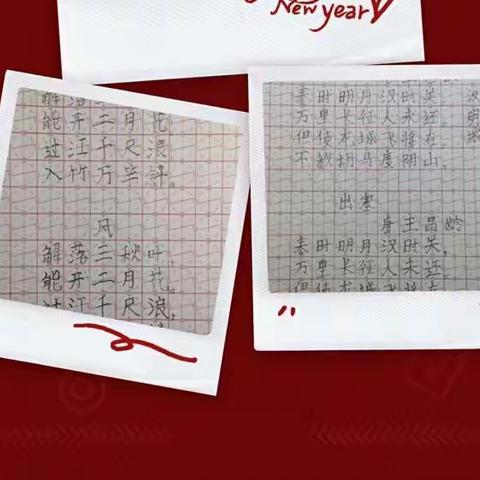 New year
解落三
能开二月花
过江千尺浪
入竹万竿斜。
风
解落三秋叶
能开二月花。
过江千尺浪,
秦时明月汉时关
万里长征人未还
但使龙城飞将在
不教胡马度阴山。
出塞
唐 王昌龄
秦时明月汉时关,
万里长征人未还。
但使龙城飞将在